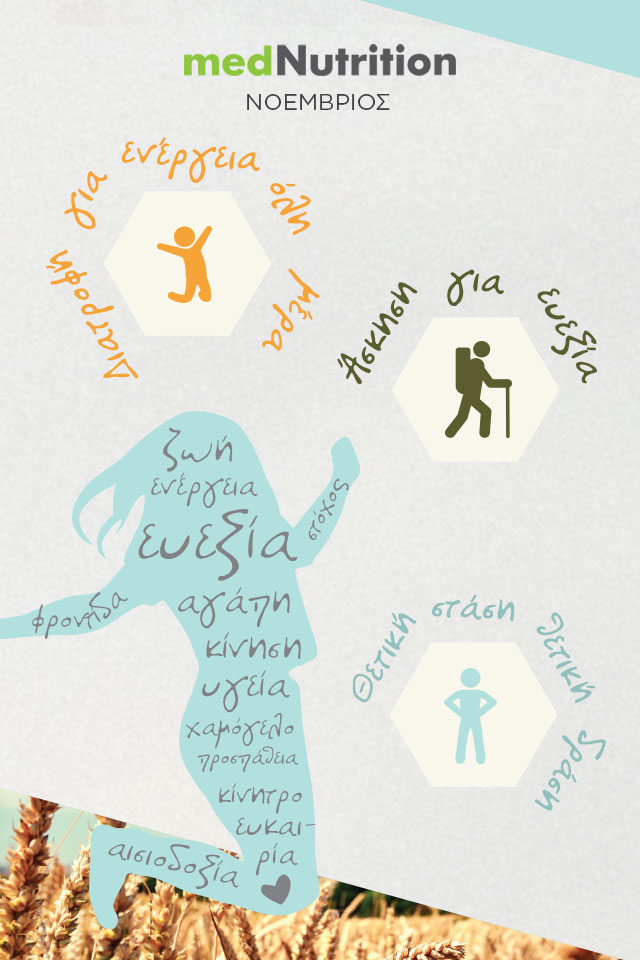 medNutrition
ΝΟΕΜΒΡΙΟΣ
Διατροφή για ενέργεια όλη μέρα
Άσκηση για ευεξία
ζωή
ενέργεια
στόχος
ευεξία
φροντίδα
αγάπη
κίνηση
υγεία
χαμόγελο
προσπάθεια
κίνητρο
ευκαι-
ρία
αισιοδοξία
Θετική στάση θετική δράση